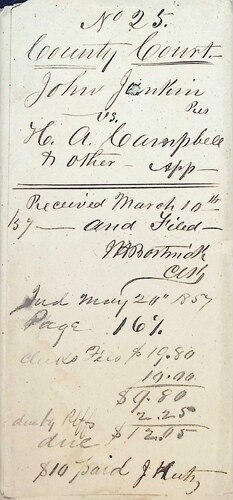 No 25.
County Court
John Jenkin
Res
vs.
H. A. Campbell
& other App
Received March 10th
/57 and Filed
Clk
Jud May 20th 1857
Page 161.
Fees $19.80
10.00
$9.80
2.25
due by Plffs
due $12.05
$10 paid J